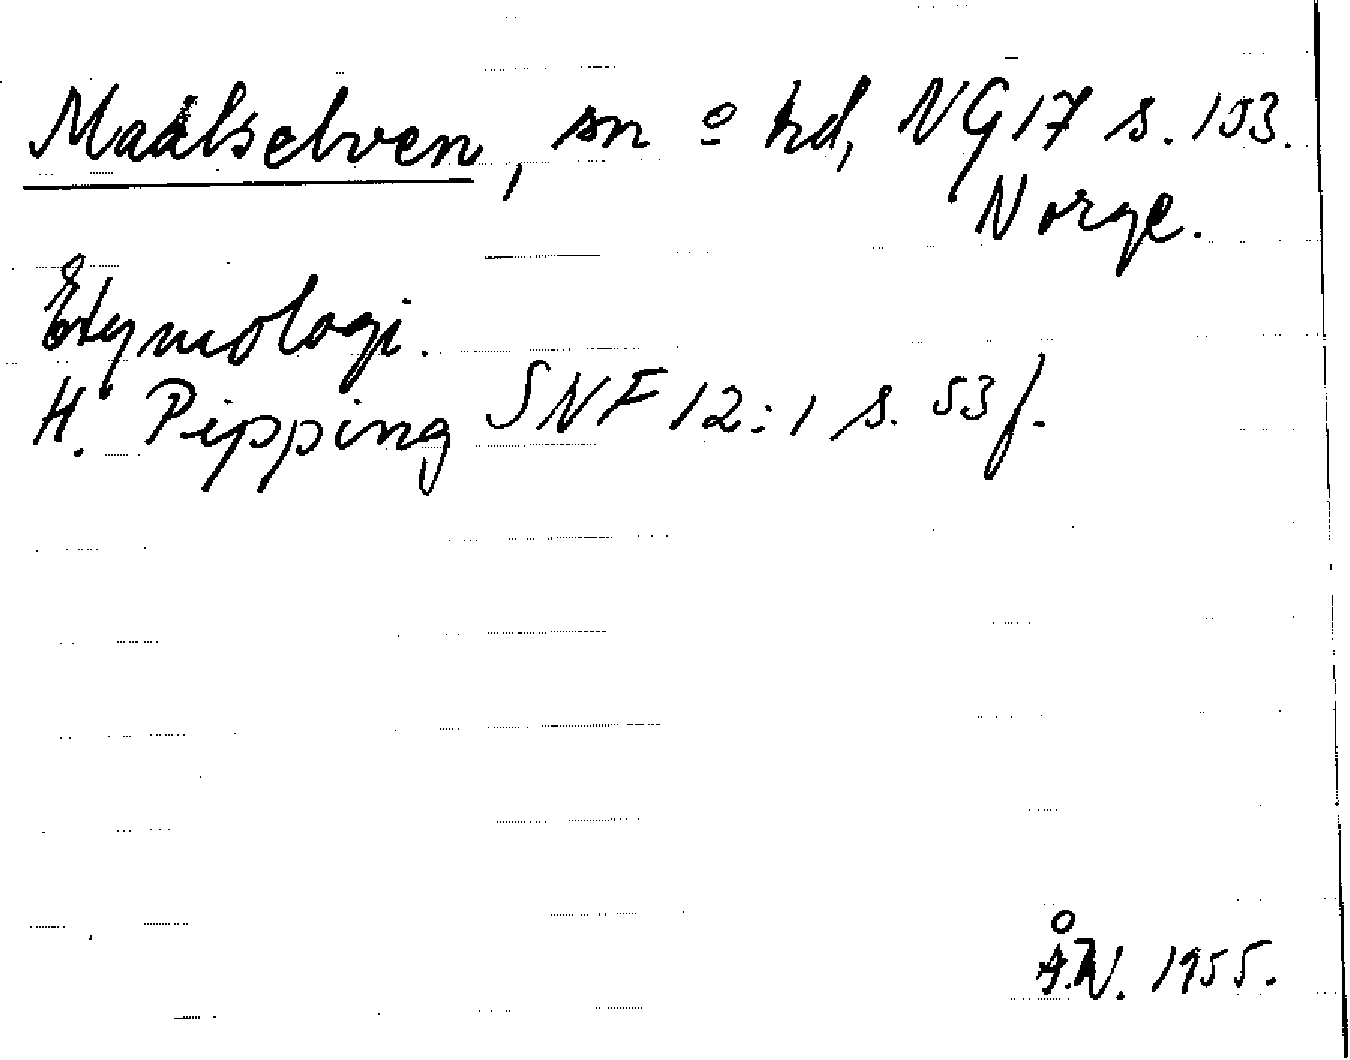 Maalselven, sn o hd, NG 17 s. 153.
Norge.
Etymologi.
H. Pipping SNF 12:1 s. 53 f.
Å.N. 1955.